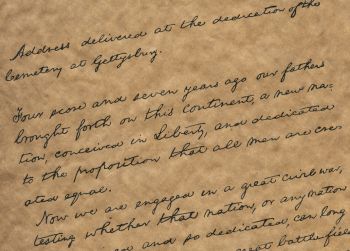 Address delivered at the dedication of the
Cemetery at Gettysburg.
Four score and seven years ago our fathers
brought forth on this continent, a new na-
tion, conceived in Liberty, and dedicated
to the proposition that all men are cre-
ated equal.
Now we are engaged in a great civil war,
testing whether that nation, or any nation
and so dedicated, can long
great battlefield